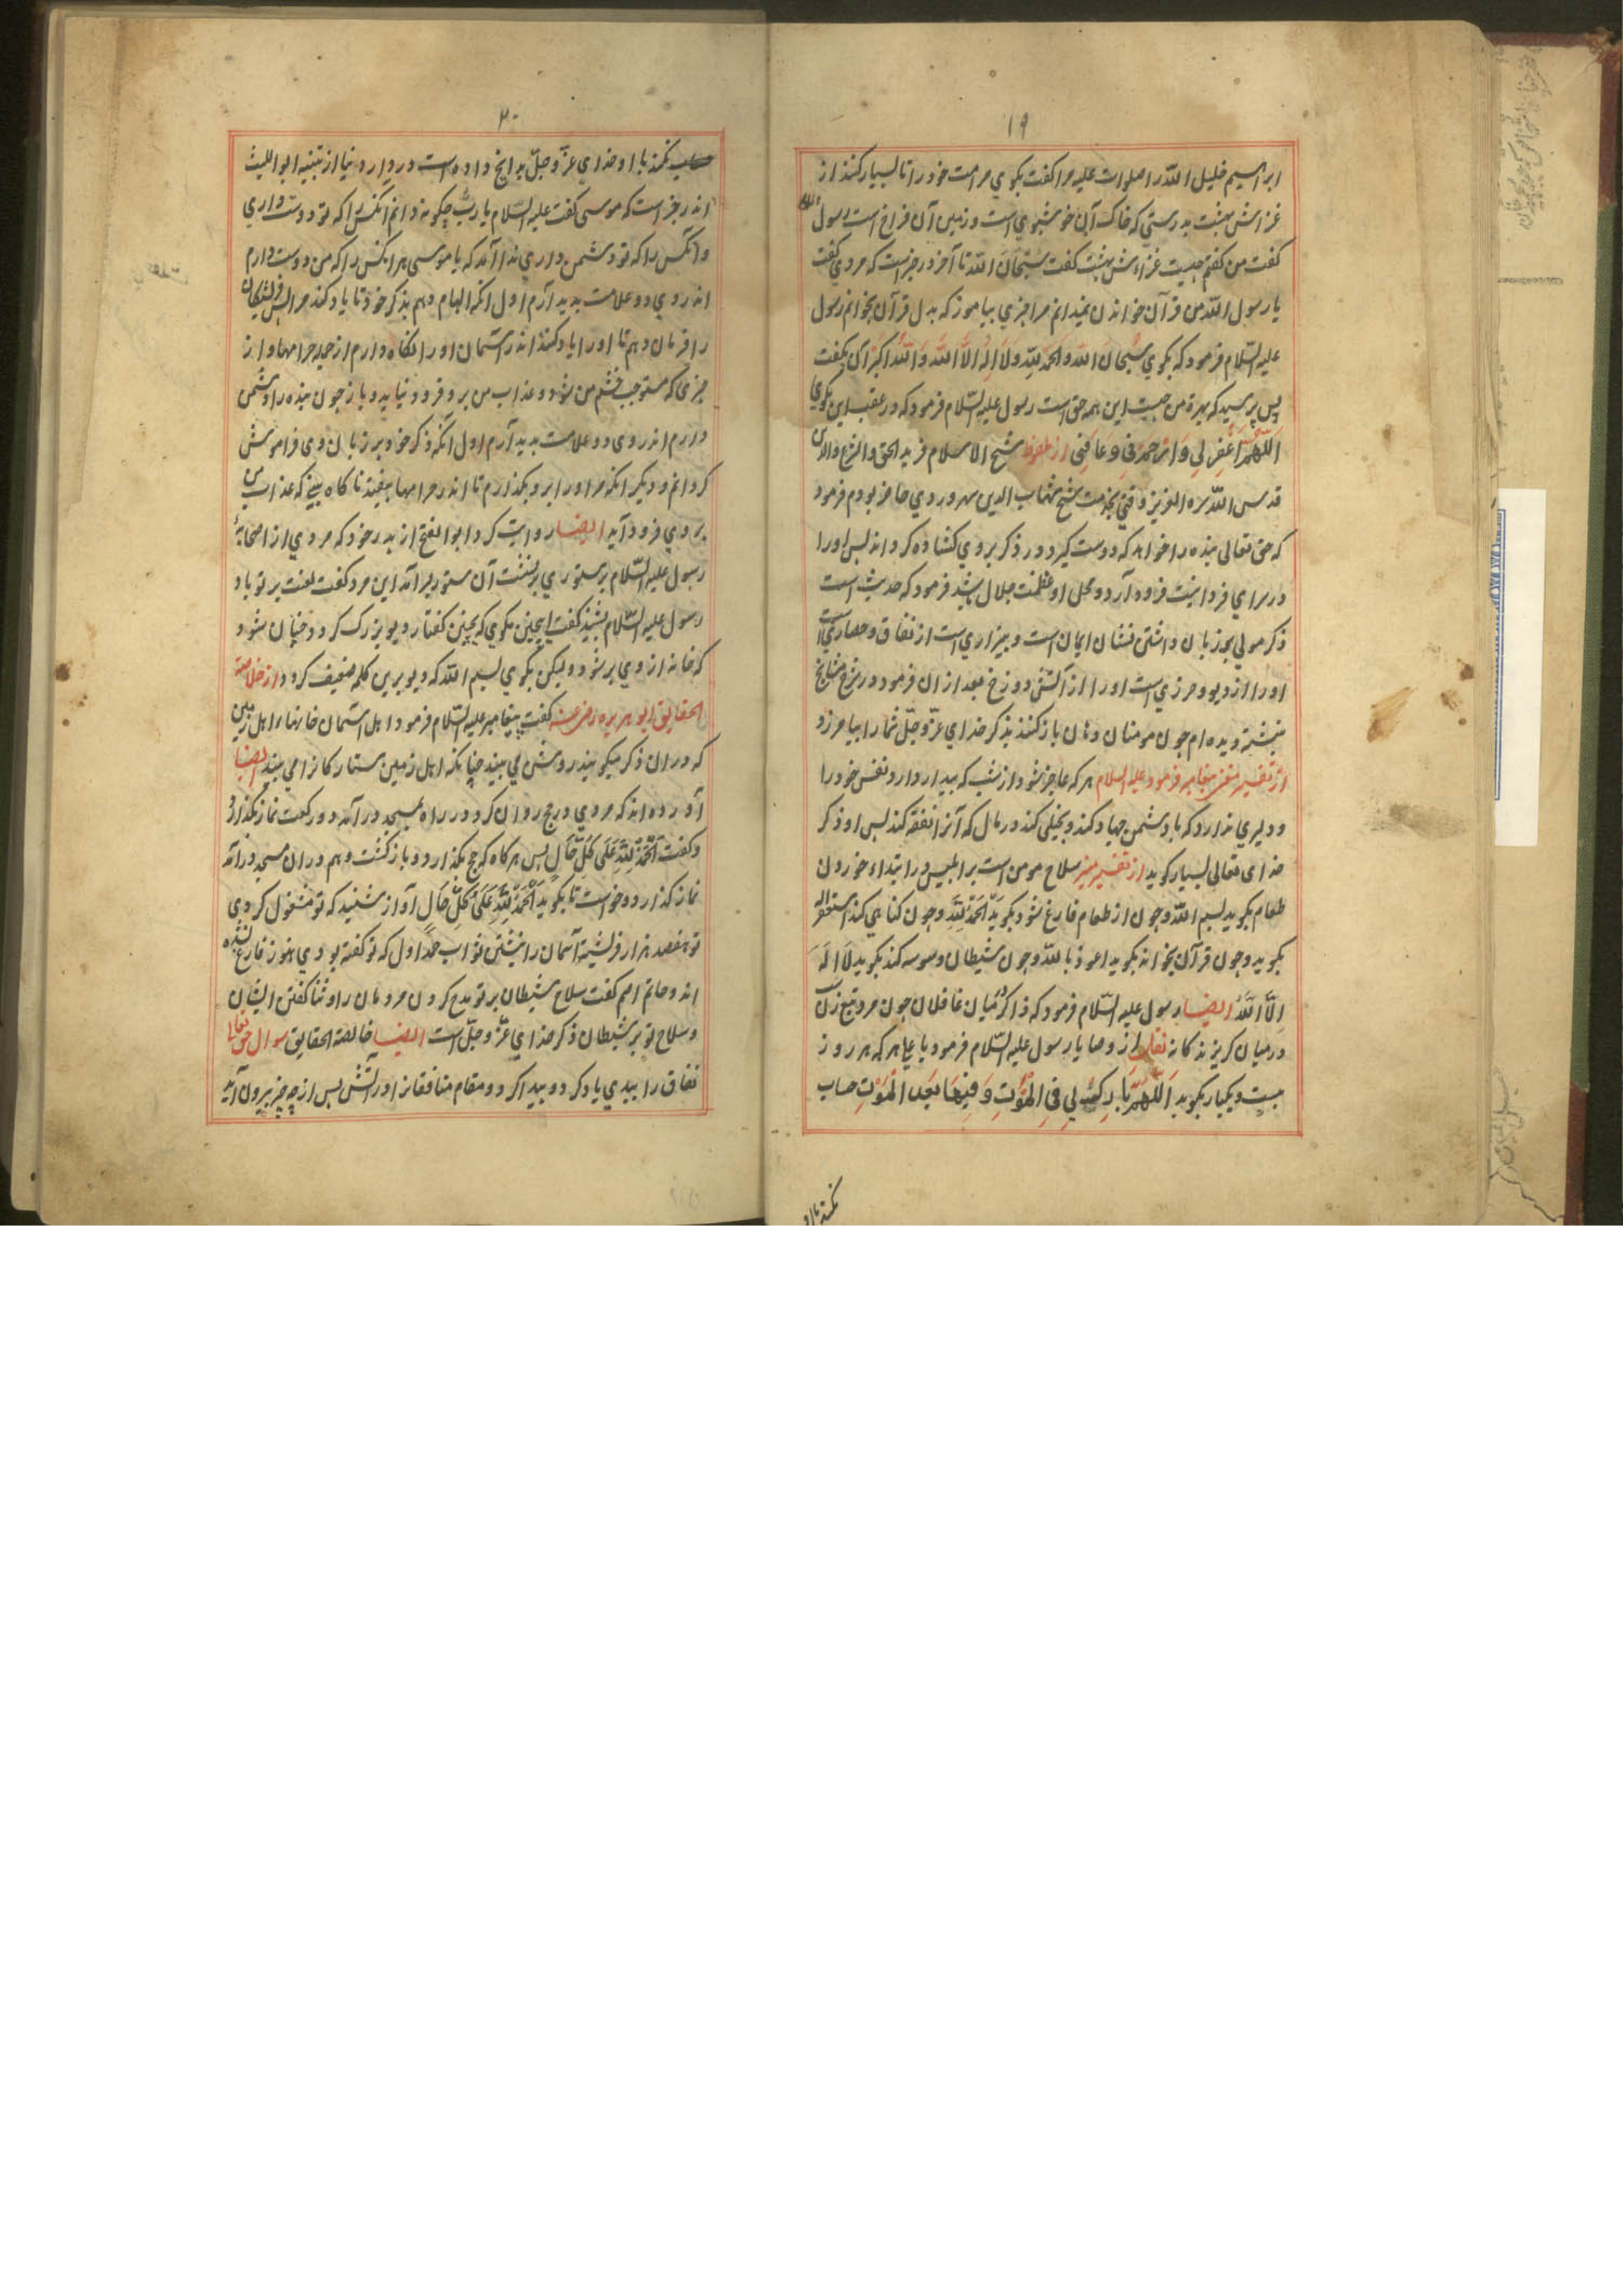 ١٩
ابراهیم خلیل الله را صلوات علیه مرا کفت بکوی مر امت خود را تا بسیار کنند از
غراش بهشت بدرستی که خاک آن خوشبوی است و زمین آن فراخ است رسول
کفت من کفتم چیست غراش بهشت کفت سُبْحَانَ الله تا آخر در خبر است که مردی کفت
یا رسول الله من قرآن خواندن نمیدانم مرا چیزی بیاموز که بدل قرآن بخوانم رسول
علیه السّلام فرمود که بکوی سُبْحَانَ الله وَالْحَمْدُ لِلّهِ وَلَا اِلٰهَ اِلَّا اللّهُ وَاللّهُ اَکْبَرُ آن بکفت
پس پرسید که بهرهٔ من چیست این همه حق است رسول علیه السّلام فرمود که در عقب این بکوی
اَللّٰهُمَّ اغْفِرْ لِی وَارْحَمْنِی وَعَافِنِی از ملفوظ شیخ الاسلام فرید الحق والشرع والدین
قدس الله سره العزیز وقتی بخدمت شیخ شهاب الدین سهروردی حاضر بودم فرمود
که حق تعالی بنده را خواهد که دوست کیرد در ذکر بروی کشاده کرداند پس او را
در سرای فردانیت فرود آرد و محل او عظمت جلال باشد فرمود که حدیث است
ذکر مولی بر زبان داشتن نشان ایمان است و بیزاری است از نفاق و حصاری است
او را از دیو و حرزی است او را از آتش دوزخ بعد از ان فرمود در شرح مشایخ
نبشته دیده ام چون مومنان دهان باز کنند بذکر خدای عزّ و جلّ شما را بیامرزد
از تفسیر مغنی پیغامبر فرمود علیه السلام هر که عاجز شود از شب که بیدار دارد نفس خود را
و دلیری ندارد که با دشمن جهاد کند و بخیلی کند در مال که آنرا نفقه کند پس او ذکر
خدای تعالی بسیار کوید از تفسیر منیر سلاح مومن است بر ابلیس در ابتداء خوردن
طعام بکوید بسم الله و چون از طعام فارغ شود بکوید اَلْحَمْدُ لِلّهِ و چون کناهی کند استغفر الله
بکوید و چون قرآن بخواند بکوید اعوذ بالله و چون شیطان وسوسه کند بکوید لَا اِلٰهَ
اِلَّا اللّهُ ایضا رسول علیه السّلام فرمود که ذاکر میان غافلان چون مرد تیغ زن
در میان کریزندکانه نقلست از وصایا رسول علیه السّلام فرمود یا علی هر که هر روز
بیست و یکبار بکوید اَللّٰهُمَّ بَارِکْ لِی فِی الْمَوْتِ وَفِیمَا بَعْدَ الْمَوْتِ حساب
نکند با او
٢٠
نکند با او خدای عزّ و جلّ بدانچ داده است در دار دنیا از تنبیه ابو اللیث
اندر خبر است که موسی کفت علیه السّلام یا ربّ چکونه دانم آنکس را که تو دوست داری
و آنکس را که تو دشمن داری ندا آمد که یا موسی هر آنکس را که من دوست دارم
اندر وی دو علامت پدید آرم اول آنکه الهام دهم بذکر خود تا یاد کند مرا پس فرشتکان
را فرمان دهم تا او را یاد کنند اندر آسمان او را نکاه دارم از جمله حرامها و از
چیزی که مستوجب خشم من شود و عذاب من برو فرود نیاید و باز چون بنده را دشمن
دارم اندر وی دو علامت پدید آرم اول آنکه ذکر خود بر زبان وی فراموش
کردانم و دیکر آنکه مر او را برو بکذارم تا اندر حرامها بیفتد ناکاه بینی که عذاب من
بر وی فرود آید ایضا روایت کرد ابو الفتح از پدر خود که مردی از اصحابهٔ
رسول علیه السّلام بر ستوری برنشست آن ستور بسر آمد این مرد کفت لعنت بر تو باد
رسول علیه السّلام بشنید کفت اینچنین مکوی که بچنین کفتار دیو بزرک کردد چنان شود
که خانه از وی پر شود و لیکن بکوی بسم الله که دیو برین کلمه ضعیف کردد از خلاصة
الحقایق ابو هریره رضی عنه کفت پیغامبر علیه السّلام فرمود اهل آسمان خانهاء اهل زمین
که در ان ذکر میکویند روشن می بینند چنانکه اهل زمین ستارکانرا می بینند ایضا
آورده اند که مردی در حج روان کردد در راه بمسجد درآمد دو رکعت نماز بکذارد
و کفت اَلْحَمْدُ لِلّهِ عَلَی کُلِّ حَالٍ پس هر کاه که حج بکذارد و باز کشت و هم در ان مسجد درآمد
نماز کذارد و خواست تا بکوید اَلْحَمْدُ لِلّهِ عَلَی کُلِّ حَالٍ آواز شنید که تو مشغول کردی
تو هفصد هزار فرشته آسمان را نبشتن ثواب حمد اول که تو کفته بودی هنوز فارغ نشده
اند و حاتم اصم کفت سلاح شیطان بر تو مدح کردن مردمان را و ثنا کفتن ایشان
و سلاح تو بر شیطان ذکر خدای عزّ و جلّ است ایضا خالصة الحقایق سوال حق تعالی
نفاق را ببدی یاد کرد و پیدا کرد و مقام منافقانرا در آتش پس از چه چیز بیرون آید